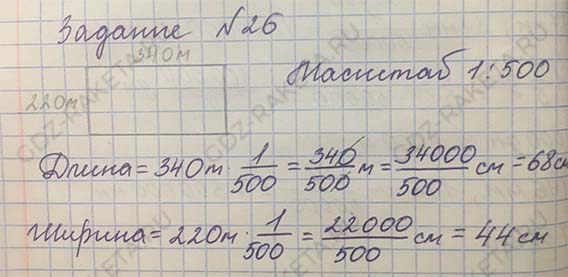 Задание №26
340м
Масштаб 1:500
220м
Длина = 340м · 1/500 = 340/500 м = 34000/500 см = 68см
Ширина = 220м · 1/500 = 22000/500 см = 44см
GDZ-RAKETA.RU